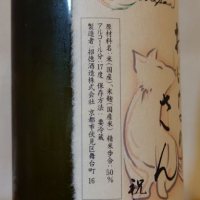 原材料名・米(国産)、米麹(国産米) 精米歩合・50%
アルコール分・17度 保存方法・要冷蔵
製造者・招德酒造株式会社 京都市伏見区舞台町16
さん
祝